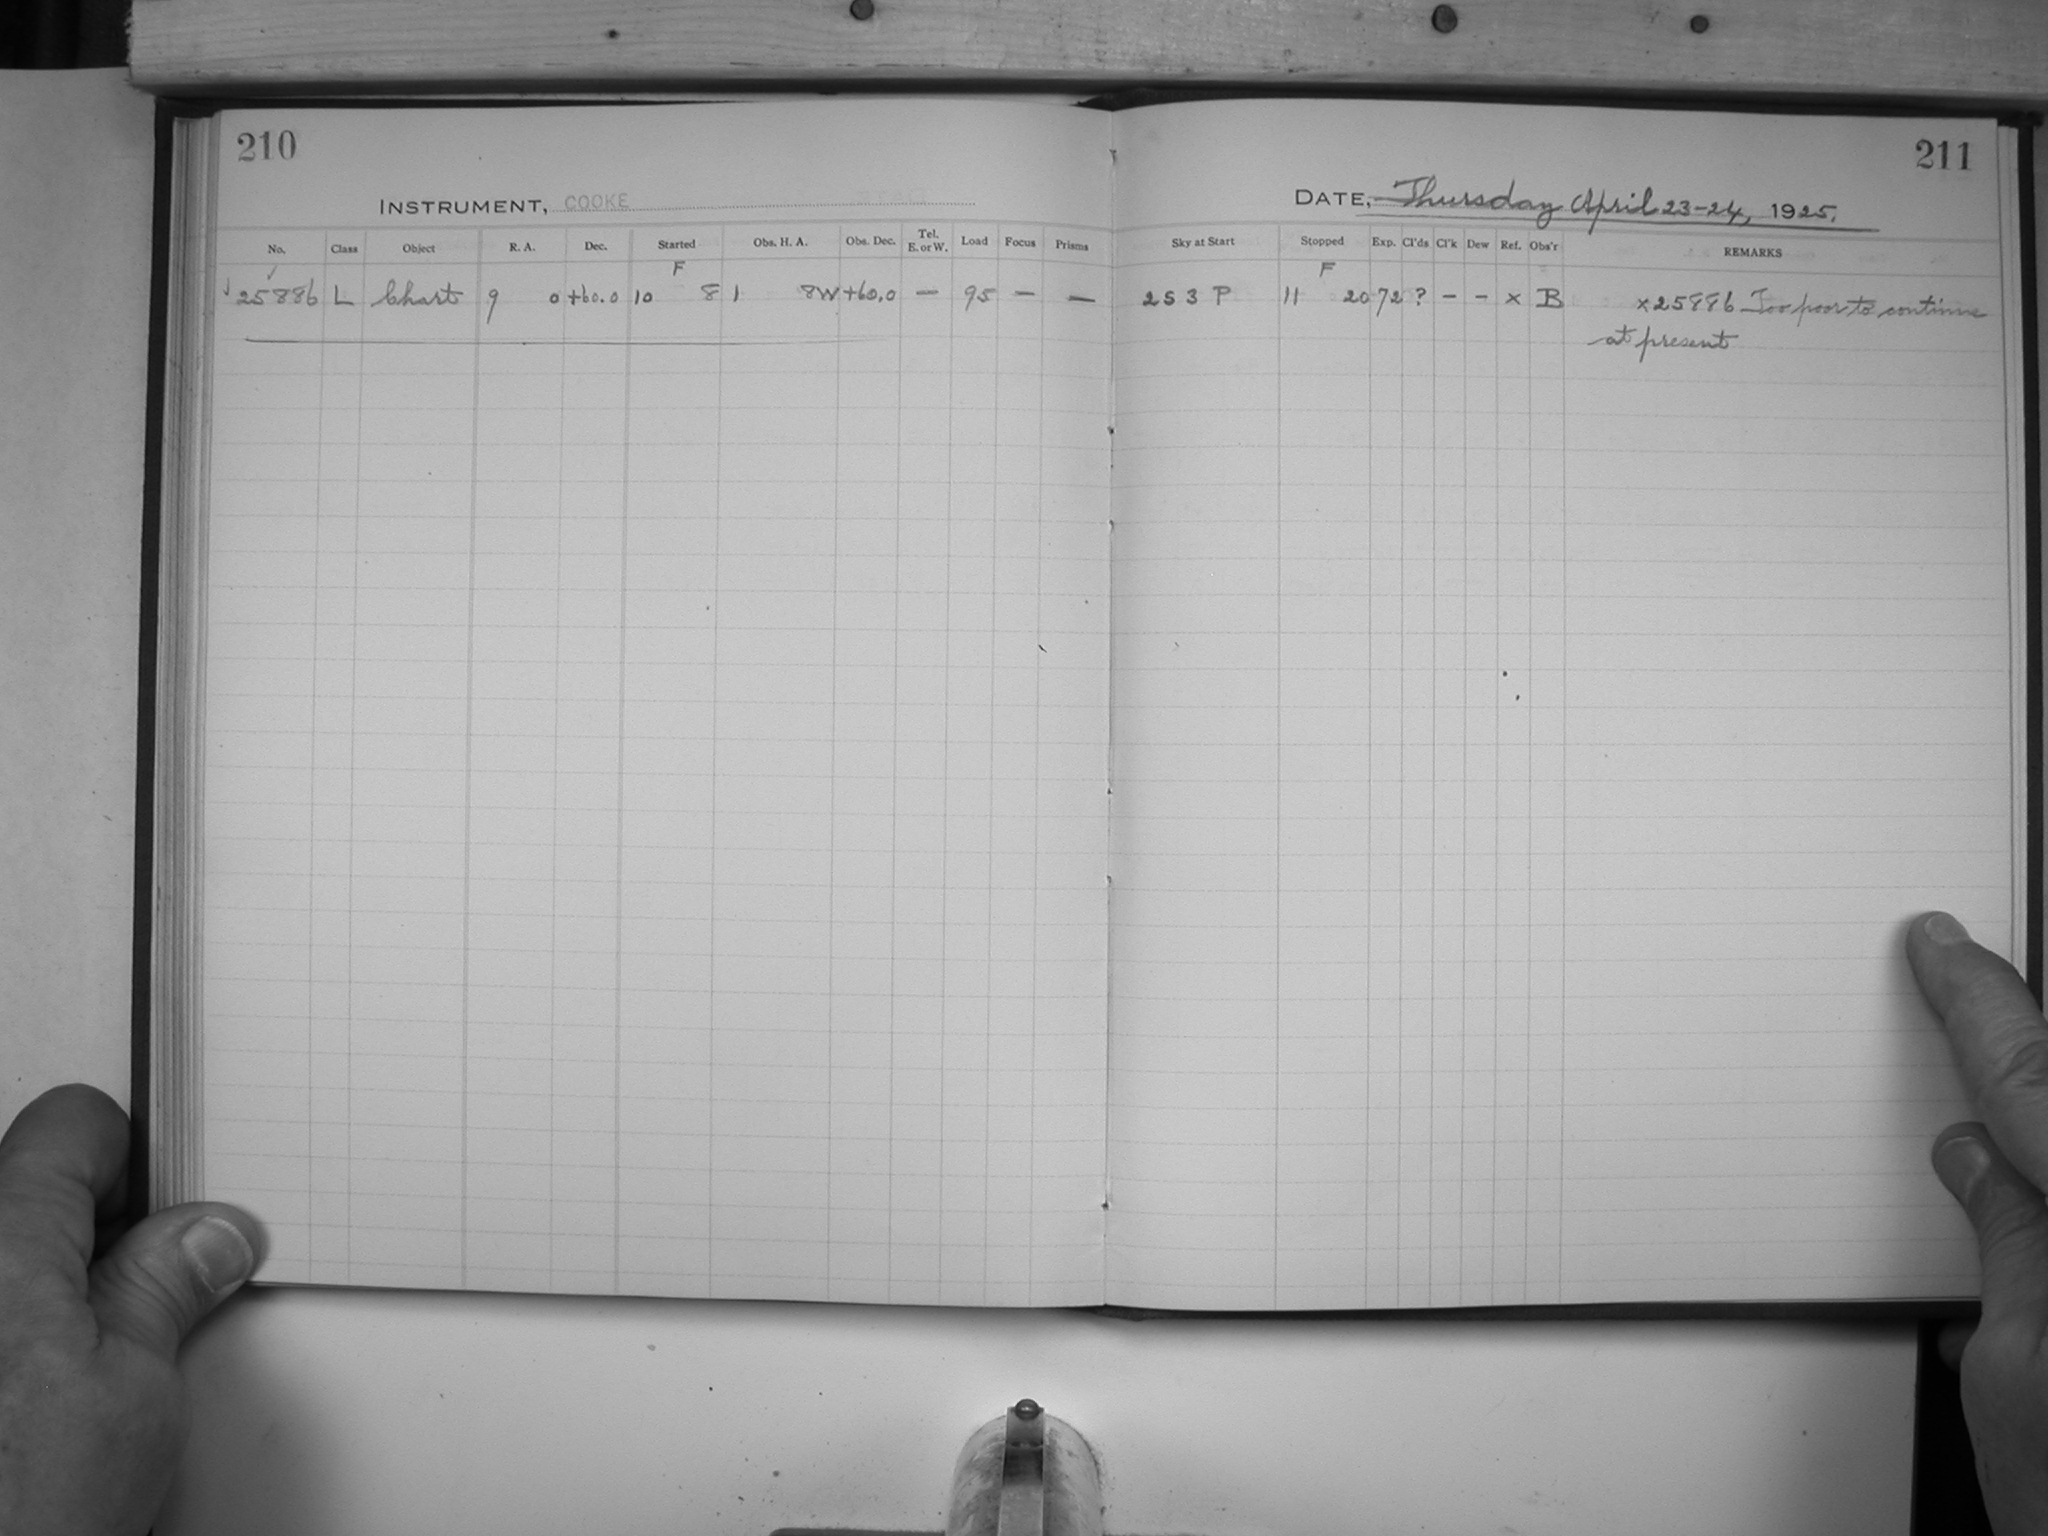 210
211
INSTRUMENT, COOKE
DATE, Thursday April 23-24, 1925.
No. Class Object R. A. Dec. Started Obs. H. A. Obs. Dec. Tel. E. or W. Load Focus Prisms Sky at Start Stopped Exp. Cl'ds Cl'k Dew Ref. Obs'r REMARKS
F F
25886 L Chart 9 0 +60.0 10 8 1 8W +60.0 — 95 — — 253 P 11 20 72 ? – – x B x25886 Too poor to continue
at present